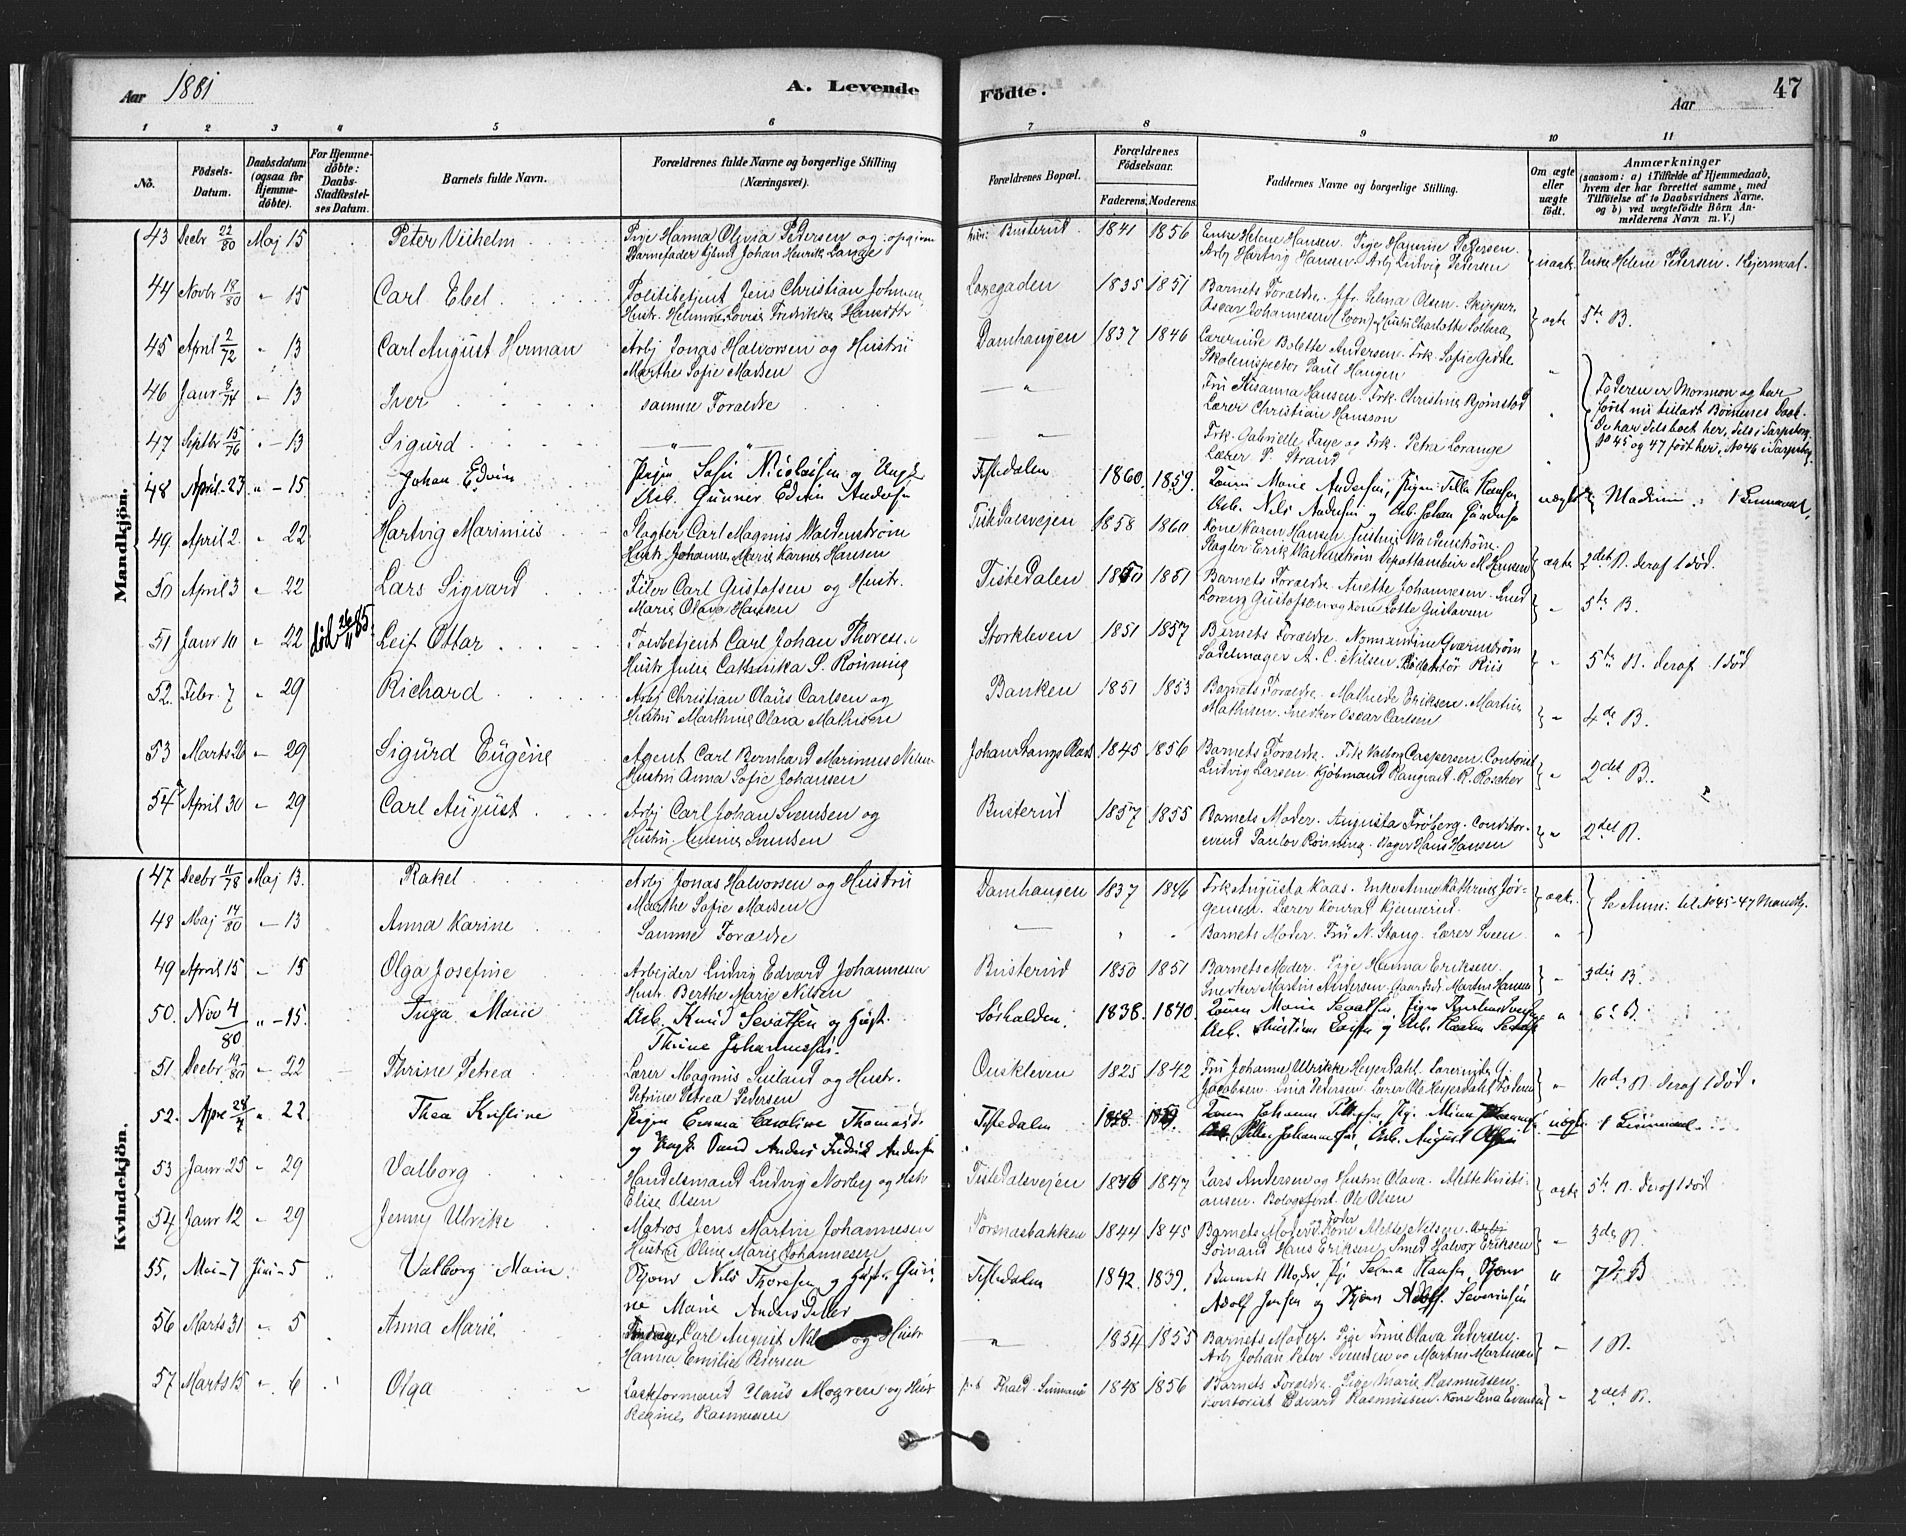 Aar 1881 A. Levende
Födte. Aar 47
1 2 3 4 5 6 7 8 9 10 11
No. Födsels-Datum. Daabsdatum (ogsaa for Hjemmedöbte). For Hjemmedöbte: Daabs-Stadfæstelses Datum. Barnets fulde Navn. Forældrenes fulde Navne og borgerlige Stilling (Næringsvei). Forældrenes Bopæl. Forældrenes Födselsaar. Faderens. Moderens. Faddernes Navne og borgerlige Stilling. Om ægte eller uægte födt. Anmærkninger (saasom: a) i Tilfælde af Hjemmedaab, hvem der har forrettet samme, med Tilföielse af to Daabsvidners Navne, og b) ved uægtefödte Börn Anmelderens Navn m. V.)
Mandkjön.
43 Decbr 22/80 Maj 15 Peter Vilhelm Pige Hanna Olivia Pedersen og opgiven Busterud 1841 1856 Enke Helene Hansen. Pige
Barnefader Johan Henrik Lange Arbj Hartvig Hansen. Arbj Ludvig Pedersen uægte Enke Helene Pedersen.
44 Novbr 18/80 " 15 Carl Ebel Politibetjent Jens Christian Johnsen 1835 1851 Barnets Forældre. Selma Olsen. Skipper
Hustr. Lovise Fredrikke Oscar Johannesen ægte 5te B.
45 April 2/72 " 13 Carl August Herman Arbj Jonas Halvorsen og Hustru Damhaugen 1837 1846 Lærerinde Bolette Andersen. Frk. Sofie Gedde
Marthe Sofie Madsen Skoleinspektør Paul Haugen "
46 Janr 8/74 " 13 Iver samme Forældre " Fru Susanna Hansen. Frk. Christine Bjørnstad Faderen er Mormon og har
Lærer Christian Hansson "
47 Septbr 15/76 " 13 Sigurd " " " Frk. Gabrielle Faye og Frk. Petra Lorange No 45 og 47 født her, No 46 i Sarpsborg
Lærer P. Strand "
48 April 23 " 15 Johan Edvin Pigen Sofie Nicolaisen og Ungk. Tistedalen 1860. 1859. Marie Andersen, Pigen Tilla Hansen
Arb. Gunner Edvin Andersen Arb. Nils Andersen og Arb. Johan uægte
49 April 2 " 22 Hartvig Marinius Slagter Carl Magnus Waldenstrøm Tistedalsvejen 1858 1860 Kone Karen Hansen Justine Waldenstrøm.
Hustr Johanne Marie Hansen Slagter Erik Waldenstrøm ægte 2det B. deraf 1 død.
50 April 3 " 22 Lars Sigvard Filer Carl Gustafsen og Hustr. Tistedalen 1850 1851 Barnets Forældre. Anette Johannesen. Smed
Marie Olava Hansen Lorenz Gustafsen og Kone Lotte Gustaven " 5te B.
51 Janr 10 " 22 død 26/11 85. Leif Ottar Toldbetjent Carl Johan Thoresen Storkleven 1851 1857 Barnets Forældre.
Hustr Julie Cathinka S. Rønning Sadelmager A. C. Nilsen. Riis " 5te B. deraf 1 død
52. Febr. 7 " 29 Richard Arbj Christian Olaus Carlsen og Banken 1851 1853 Barnets Forældre. Mathilde Eriksen. Martin
Hustru Marthine Olava Mathisen Mathisen. Snedker Oscar Carlsen " 4de B.
53 Marts 26 " 29 Sigurd Eugène Agent Carl Bernhard Marinius Nilsen Johan Stangs Plads 1845 1856 Barnets Forældre. Frk Valborg Caspersen. Contorist
Hustru Anna Sofie Johansen Ludvig Larsen Kjøbmand " 2det B.
54 April 30 " 29 Carl August Arbj Carl Johan Svendsen og Busterud 1857 1855 Barnets Moder. Augusta Frøberg. Conditor-
Hustru. Svendsen svend Paulov Rønning. Bager Hans Hansen " 2det B.
Kvindekjön.
47 Decbr 11/78 Maj 13. Rakel Arbj Jonas Halvorsen og Hustru Damhaugen 1837 1846 Frk Augusta Kaas. Enke Anne Kathrine Jør-
Marthe Sofie Madsen gensen. Lærer Konrad Kjennerud. ægte Se Anm: til No 45-47 Mandkj.
48 Maj 14/80 " 13 Anna Karine Samme Forældre " " " Barnets Moder. Fru N. Stang. Lærer Sveen "
49 April 15 " 15 Olga Josefine Arbejder Ludvig Edvard Johannesen Busterud 1850 1851 Barnets Moder. Pige Hanna Eriksen.
Hustr. Berthe Marie Nilsen Snedker Martin Andersen. Gaardsb. Martin Hansen " 3die B.
50. Nov 4/80 " 15. Inga Marie Arb. Knud og Hust. Sørhalden. 1838. 1840. Marie
Thrine Johannesen. " 6te B.
51 Decbr 19/80 " 22 Thrine Petrea Lærer Magnus og Hustr. Ourskleven 1825 1842 Fru Johanne Ulrikke Heyerdahl. Lærerinde G.
Petrine Petrea Pedersen Jacobsen. Pedersen. Lærer Ole Heyerdahl. Faderen " 10de B. deraf 1 død.
52. Apr 24/4 " 22 Thea Kristine Pigen Emma Caroline Thomasd. Tistedalen 1858. 1859. Johanne
og Ungk. Anders Fredrik Andersen Arb. August Olsen uægte
53 Janr 25 " 29 Valborg Handelsmand Ludvig Norby og Hstr Tistedalsvejen 1846 1847 Lars Andersen og Hustru Olava. Mette Kristi-
Elise Olsen ansen. Ole Olsen ægte 5te B. deraf 1 død
54 Janr 12 " 29 Jenny Ulrike Matros Jens Martin Johannesen Porsnæsbakken 1844 1845 Barnets Moder. Kone Mette Nilsen
Hustru Oline Marie Johannesen Sømand Hans Eriksen. Smed Halvor Eriksen " 3die B.
55. Mai 7 Juni 5 Valborg Marie Nils Thoresen og Hustr. Guri- Tistedalen 1842. 1839. Barnets Moder, Pige Selma Hansen,
ne Marie Andersdatter Adolf Jensen og Adolf Severinsen " 7de B
56 Marts 31 " 5 Anna Marie Carl August og Hustr " 1854 1855 Barnets Moder. Pige Trine Olava Pedersen.
Hanna Emilie Petersen Arb. Johan Peter Svendsen og Martin Martinsen " 1 B.
57 Marts 15 " 6 Olga Claus Mogren og Hust 1848 1856 Barnets Forældre. Pige Marie Rasmussen.
Regine Rasmussen Kontorist Edvard Rasmussen. Kone Lena Evensen " 2det B.